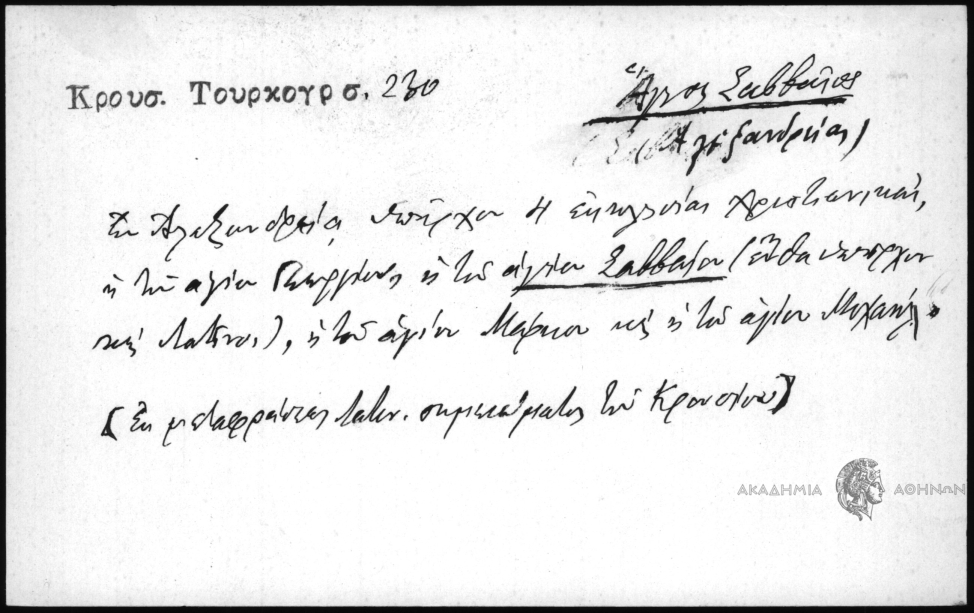 Κρουσ. Τουρκογρ σ. 230
Ἅγιος Σαββαῖος
( Ἀλεξανδρείας)
Ἐν Ἀλεξανδρείᾳ ὑπῆρχον 4 ἐκκλησίαι Χριστιανικαί,
ἡ τοῦ ἁγίου Γεωργίου, ἡ τοῦ ἁγίου Σαββαίου (ἔνθα ὑπῆρχον
καὶ Λατῖνοι), ἡ τοῦ ἁγίου Μάρκου καὶ ἡ τοῦ ἁγίου Μιχαήλ.
(Ἐκ μεταφράσεως λατιν. σημειώματος τοῦ Κρουσίου)
ΑΚΑΔΗΜΙΑ ΑΘΗΝΩΝ